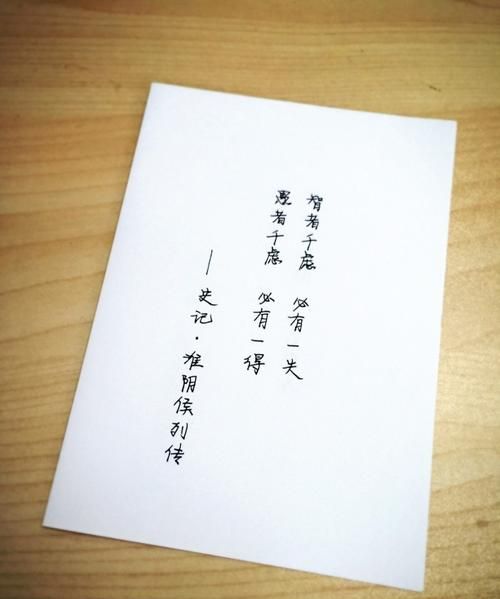 智者千虑 必有一失
愚者千虑 必有一得
——史记·淮阴侯列传